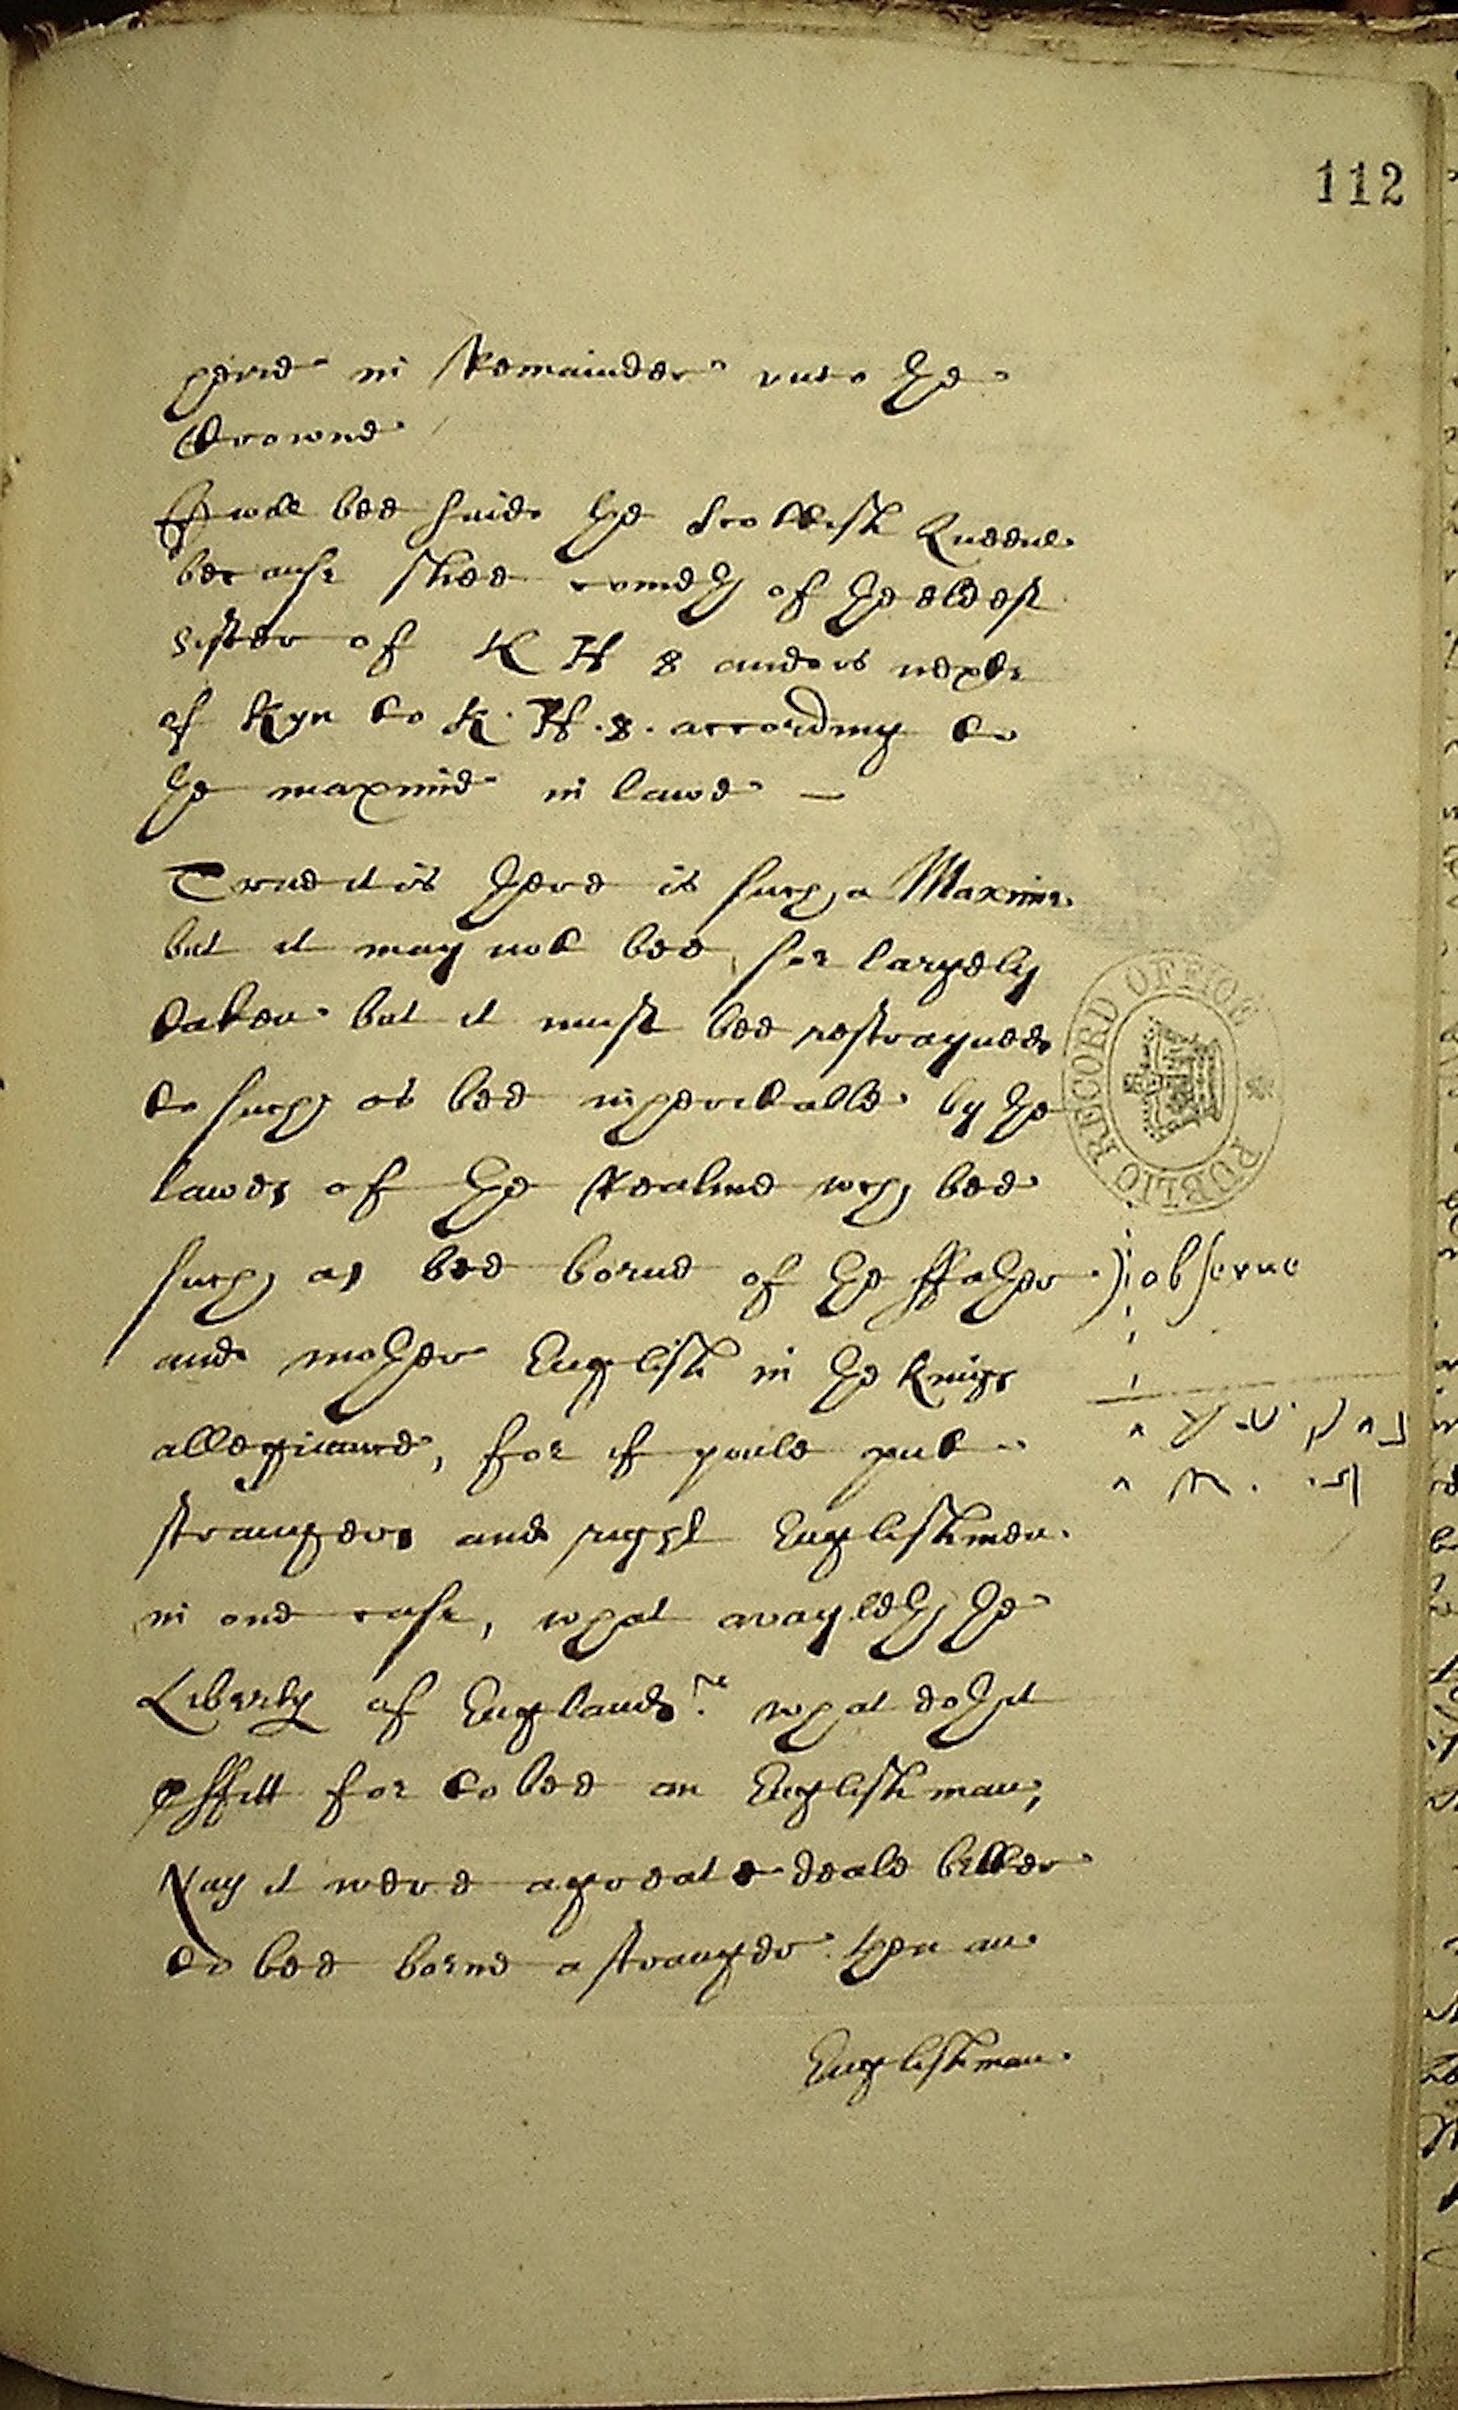 112
heire in Remainder vnto the
Crowne
It wilbe bee saide the Scottish Queene
because shee cometh of the eldest
Sister of K H 8 and is nexte
of Kyn to K. H. 8. according to
the maxime in lawe —
True it is there is such a Maxime
but it may not bee soe largely
taken but it must bee restrayned
to such as bee inheritable by the
lawes of the Realme wch bee
such as bee borne of the ffather
observe
and mother English in the Kings
allegiaunce, for if youle put
straungers and right Englishmen
in one case, what avayleth the
Liberty of England? what doth it
proffitt for to bee an Englishman,
Nay it were a greate deale better
to bee borne a straunger then an
Englishman.
PUBLIC RECORD OFFICE